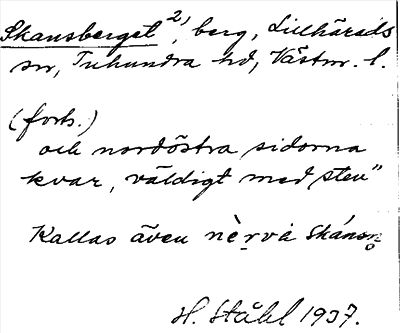 Skansberget 2), berg, Lillhärads
sn, Tuhundra hd, Västm. l.
(forts.)
och nordöstra sidorna
kvar, väldigt med sten"
Kallas även nèrvá skánsn̥
H. Ståhl 1937.